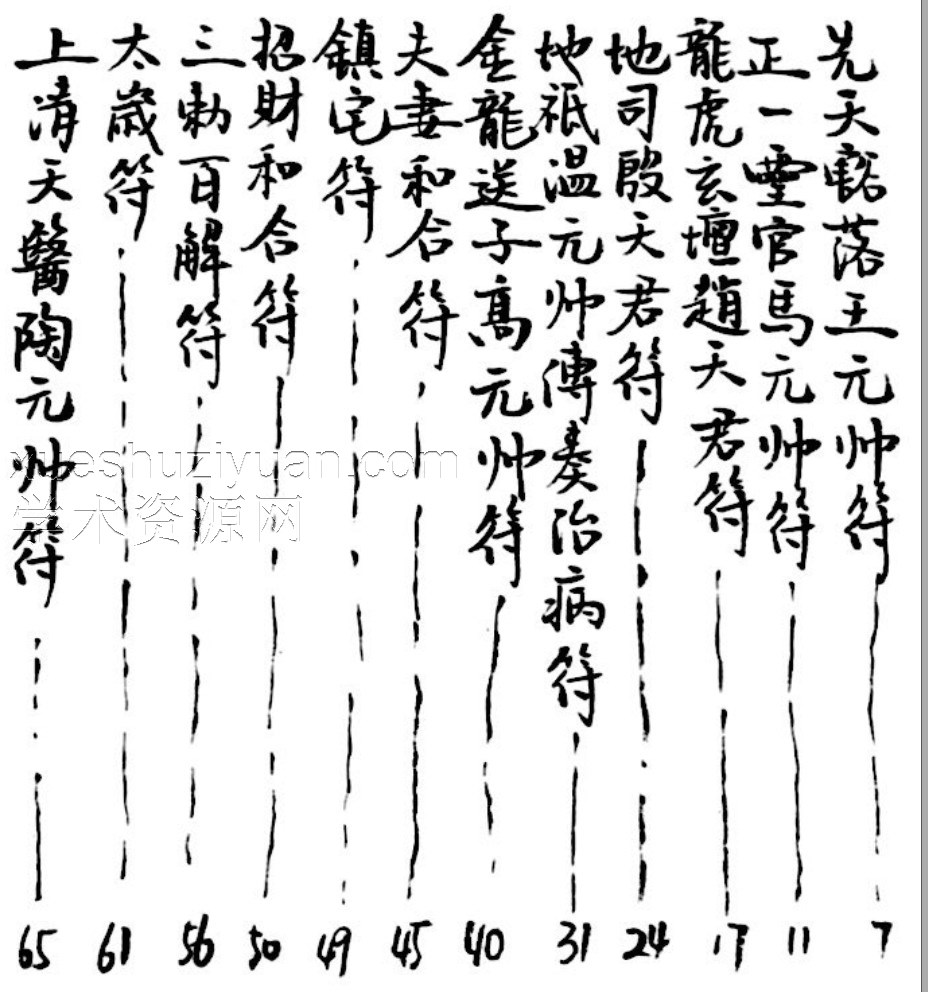 先天豁落王元帅符 7
正一靈官馬元帅符 11
龍虎玄壇趙天君符 17
地司殷天君符 24
地祇温元帅傳奏治病符 31
金龍送子高元帅符 40
夫妻和合符 45
鎮宅符 49
招財和合符 50
三勅百解符 56
太歲符 61
上清天醫陶元帅符 65
xueshuziyuan.com
学术资源网